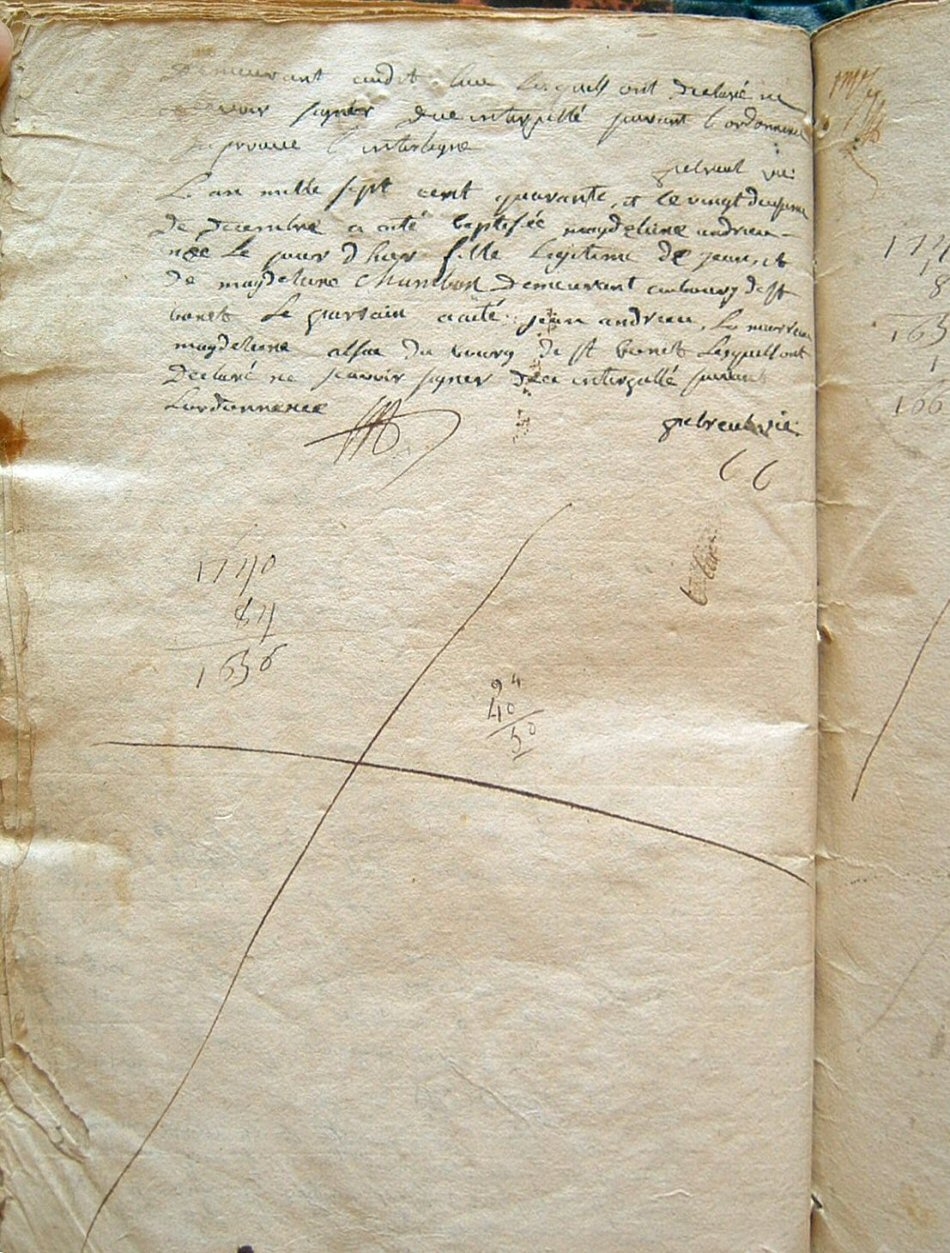 Demeurant audit lieu lesquels ont declaré ne
scavoir signer Due interpellé suivant l'ordonnence
j'aprouve l'interligne
vic:
L'an mille sept cent quarante, et le vingt deuxieme
De Decembre a eté baptisée magdeleine andrieu
née Le jour d'hier fille Legitime De jean, et
De magdeleine Chambon Demeurant au bourg de st
bonet Le parrain a eté jean andrieu, La marraine
magdeleine du bourg de st bonet Lesquels ont
Declaré ne scavoir signer De ce interpellé suivant
Lordonnence
vic:
6 6
1740
84
1656
94
40
50
174
1
8
165
1
106